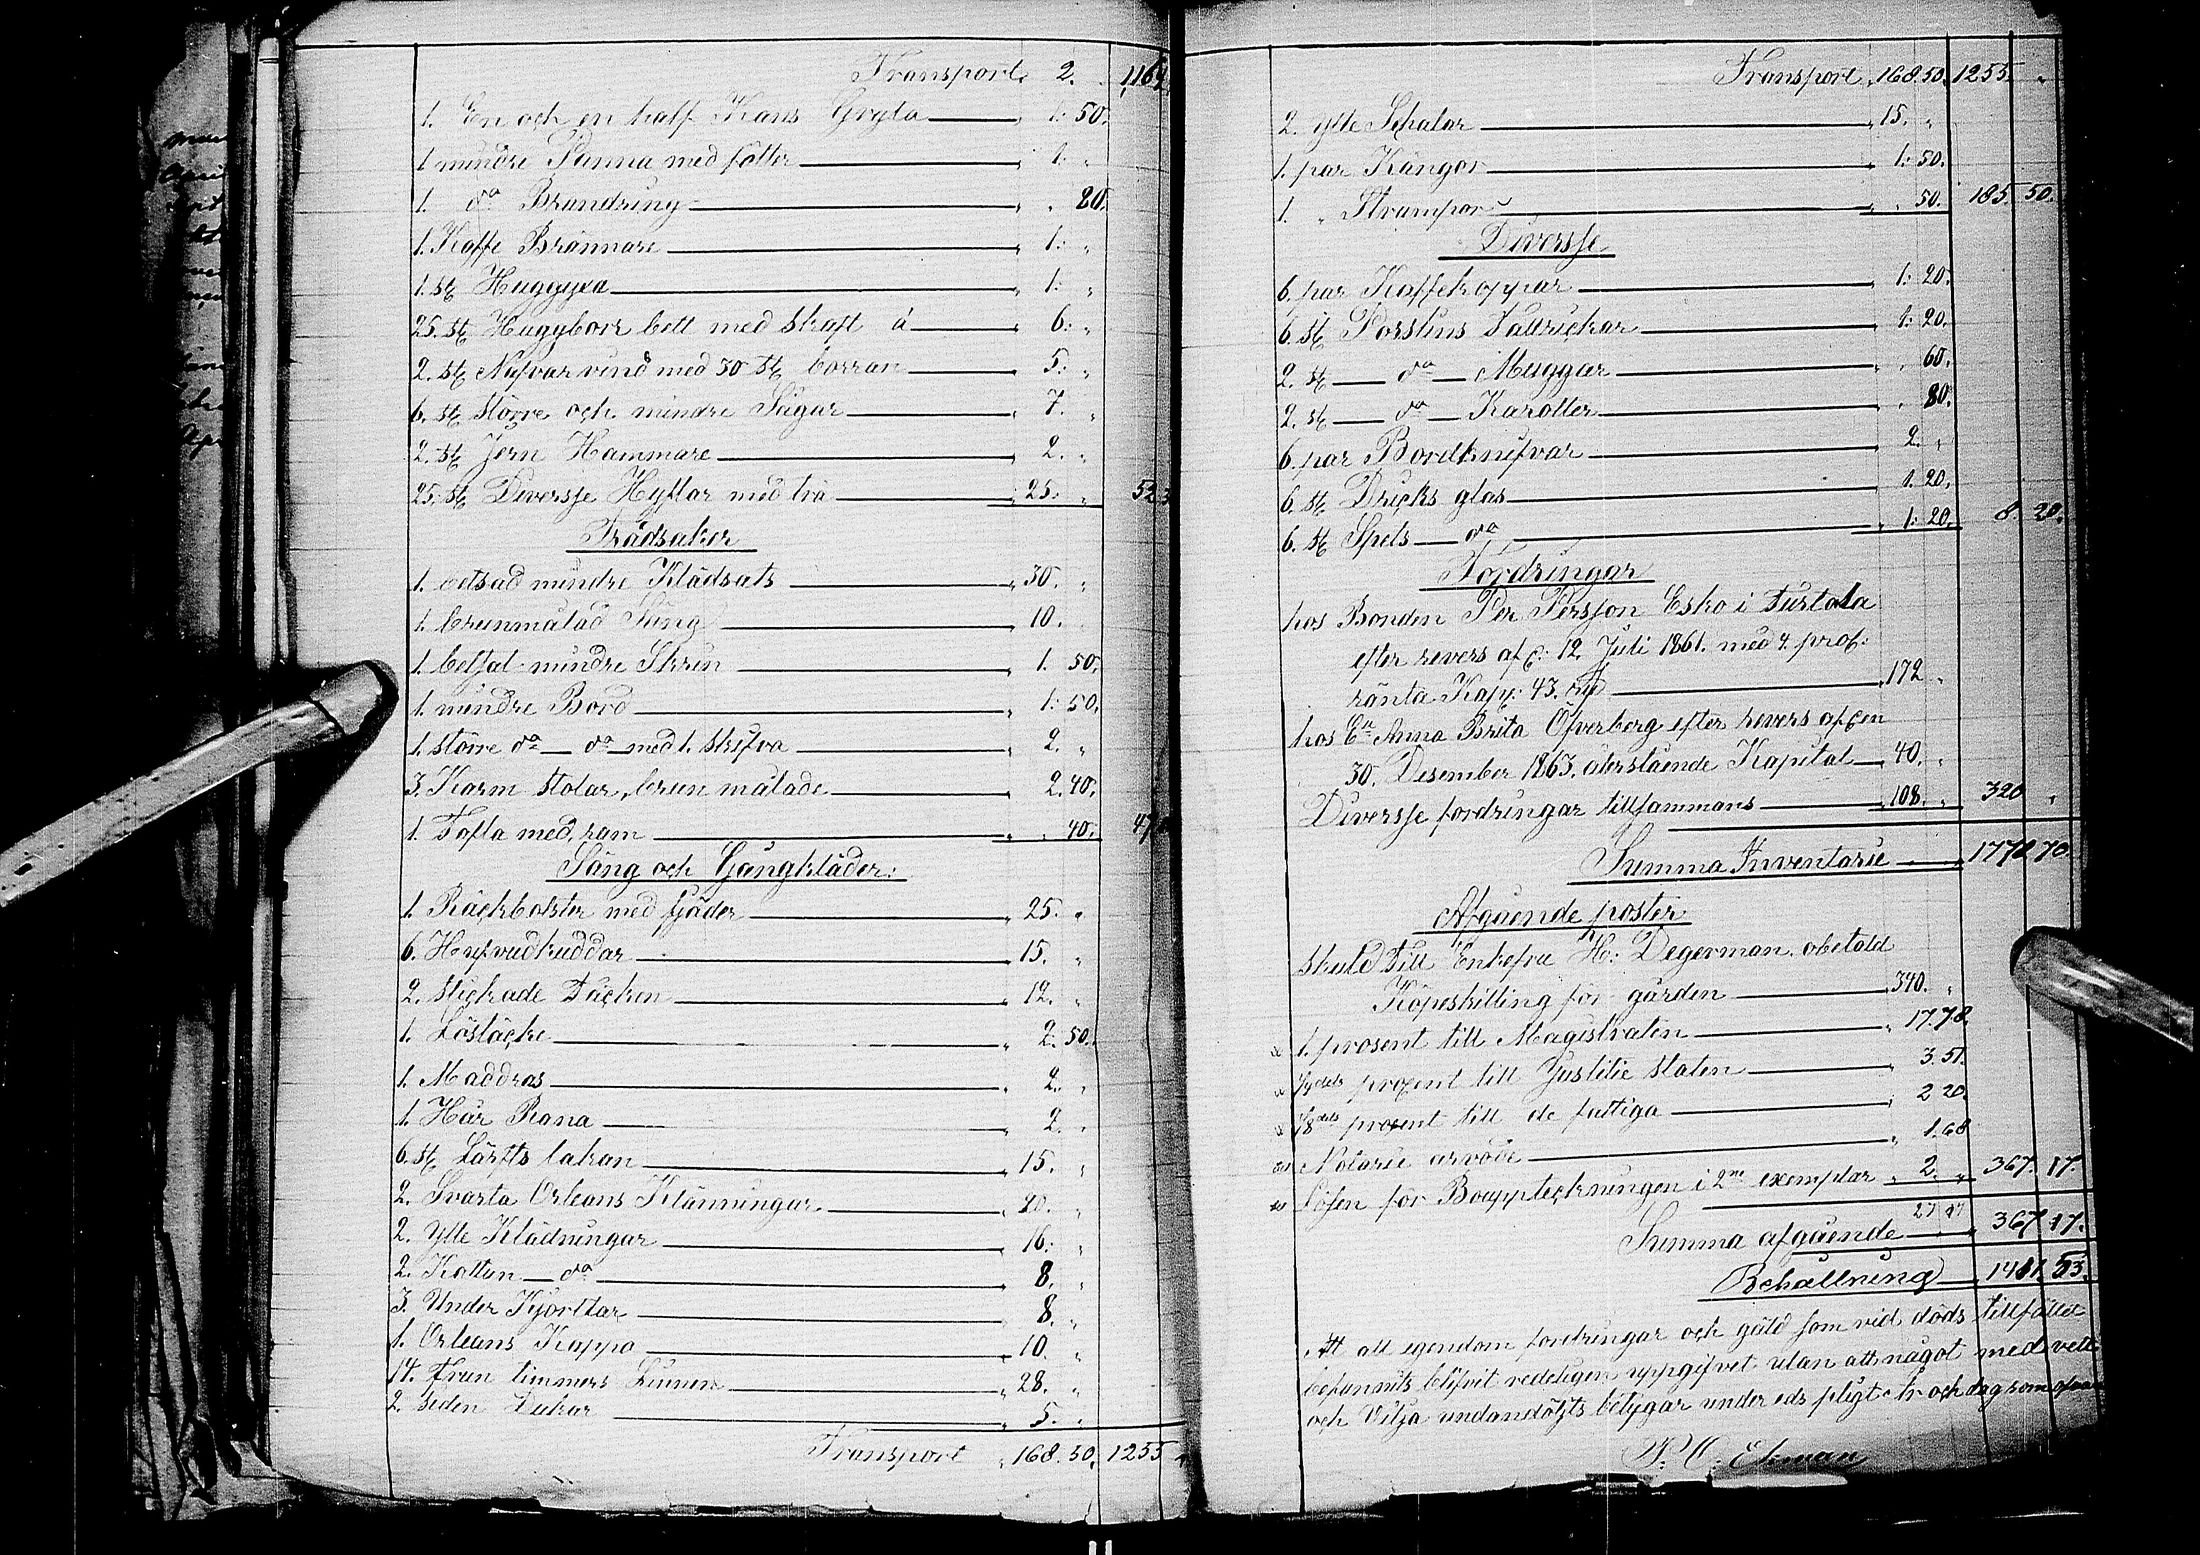 Transport 2. 1,164
1. En och en half Kans Gryta 1: 50.
1 mindre Panna med fötter 1: "
1. do Brandring " 20.
1. Kaffe Brännare 1: "
1. st Huggyxa 1: "
25. st Huggborr bett med skaft á 6: "
2. st Nafvar vind med 30 st borrar 5: "
6. st större och mindre Sågar 7. "
2. st Jern Hammare 2. "
25. st Diversse Hyflar med trä 25. " 52
Trädsaker
1. betsad mindre Klädsats 30. "
1. brunmålad Säng 10.
1. betsat mindre Skrin 1. 50.
1. mindre Bord 1: 50.
1. större do do med 1. skifva 2. "
3. Karm stolar, brun målade 2. 40.
1. Tofta med ram " 40. 47
Säng och Gångkläder:
1. Räckbolster med fjäder 25. "
6. Hufvudkuddar 15. "
2. Stickade Täcken 12. "
1. Löstäcke 2. 50.
1. Maddras 2. "
1. Hår Rana 2. "
6. st Lärfts lakan 15. "
2. Svarta Orleans Klänningar 20. "
2. Ylle Klädningar 16: "
2. Kattun do 8. "
3. Under Kjortlar 8. "
1. Orleans Kappa 10. "
14. Frun timmers Linnen 28. "
2. Siden Dukar 5. "
Transport 168. 50. 1255 "
Transport 168. 50. 1255. "
2. ylle Schalar 15. "
1. par Kängor 1: 50.
1. " Strumpor " 50. 185. 50.
Diversse
6. par Kaffekoppar 1: 20.
6. st Porslins Tallrickar 1: 20.
2. st do Muggar " 60.
2. st do Karotter " 80.
6. par Bordknifvar 2. "
6. st Dricks glas 1. 20.
6. st Spets do 1: 20. 8. 20.
Fordringar
hos Bonden Per Persson Esko i Turtola
efter revers af d: 12. Juli 1861. med 4. prof:
ränta Kap: 43. 172 "
hos En Anna Brita Öfverberg efter revers af den
30. Desember 1863. återstående Kapital 40. "
Diversse fordringar tillsammans 108. " 320 "
Summa Inventarie 1778 70.
Afgående poster
skuld till Enkefru H: Degerman obetald
Köpeskilling för gården 340. "
1. prosent till Magistraten 17. 78.
prosent till Justitie staten 3. 51.
1/8dels prosent till de fattiga 2 20.
Notarie arvode 1. 68
Lösen för Bouppteckningen i 2ne exemplar 2. " 367. 17.
27 17
Summa afgående 367 17.
Behållning 1411. 53.
Att all egendom fordringar och gäld som vid döds tillfället
befunnits blifvit redeligen uppgifvet utan att något med vett
och Vilja undandöljts betygar under eds pligt år och dag som ofvan
P. O. Ekman